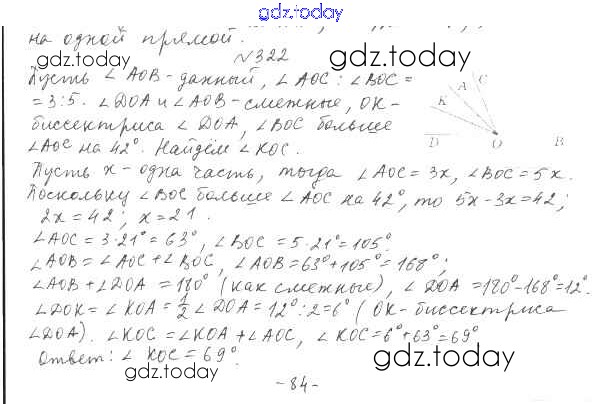 gdz.today
на одной прямой.
№322
gdz.today
gdz.today
Пусть ∠AOB - данный, ∠AOC : ∠BOC =
= 3:5. ∠DOA и ∠AOB - смежные, OK -
биссектриса ∠DOA, ∠BOC больше
∠AOC на 42°. Найдём ∠KOC.
C
A
K
D O B
Пусть x - одна часть, тогда ∠AOC = 3x, ∠BOC = 5x.
Поскольку ∠BOC больше ∠AOC на 42°, то 5x - 3x = 42;
2x = 42; x = 21.
∠AOC = 3·21° = 63°, ∠BOC = 5·21° = 105°.
∠AOB = ∠AOC + ∠BOC, ∠AOB = 63° + 105° = 168°;
∠AOB + ∠DOA = 180° (как смежные), ∠DOA = 180° - 168° = 12°.
∠DOK = ∠KOA = 1/2 ∠DOA = 12° : 2 = 6° (OK - биссектриса
∠DOA). ∠KOC = ∠KOA + ∠AOC, ∠KOC = 6° + 63° = 69°
Ответ: ∠KOC = 69°.
gdz.today
gdz.today
- 84 -
gdz.today